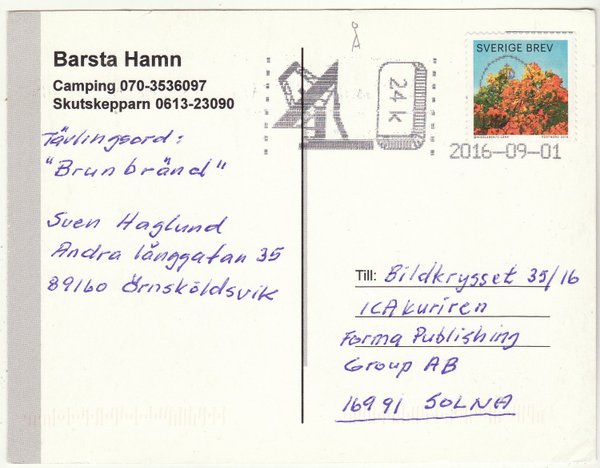 Barsta Hamn
Camping 070-3536097
Skutskepparn 0613-23090
Tävlingsord:
"Brunbränd"
Sven Haglund
Andra långgatan 35
89160 Örnsköldsvik
Å
24 k
SVERIGE BREV
2016-09-01
Till: Bildkrysset 35/16
ICAkuriren
Forma Publishing
Group AB
16991 SOLNA